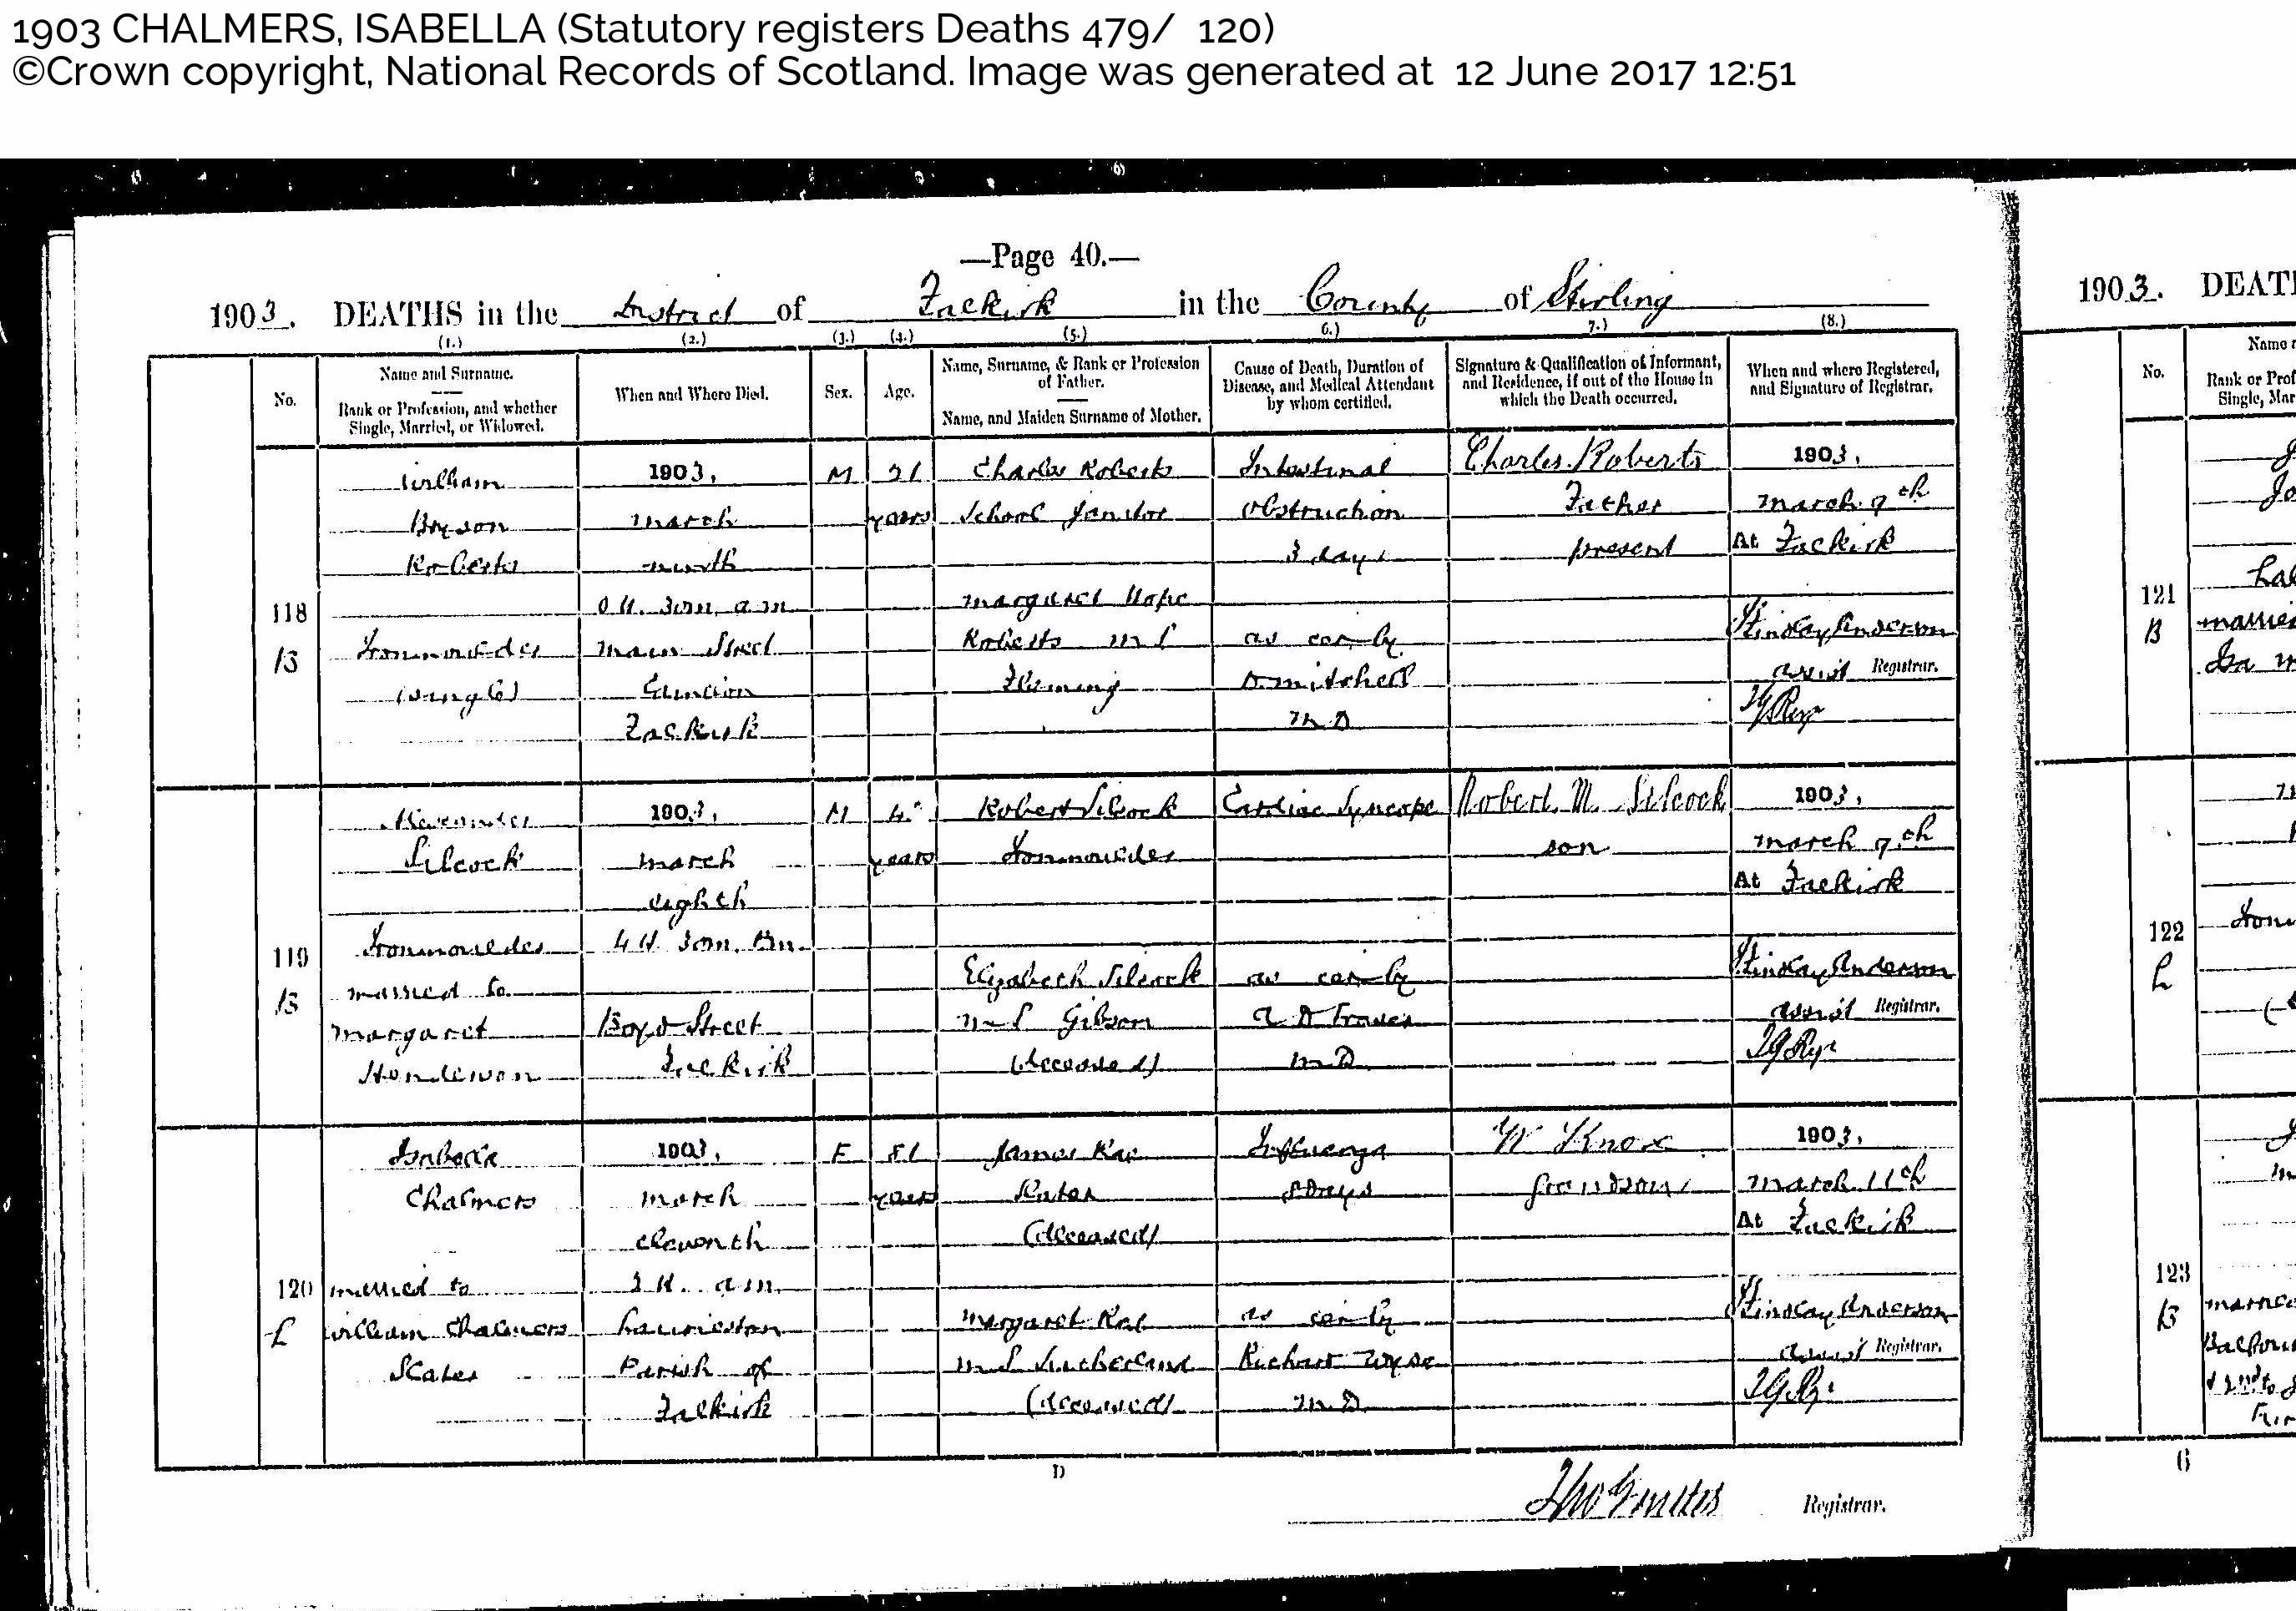 1903 CHALMERS, ISABELLA (Statutory registers Deaths 479/ 120)
©Crown copyright, National Records of Scotland. Image was generated at 12 June 2017 12:51
—Page 40.—
1903. DEATHS in the District of Falkirk in the County of Stirling
(1.) (2.) (3.) (4.) (5.) 6.) 7.) (8.)
No.
Name and Surname.
Rank or Profession, and whether
Single, Married, or Widowed.
When and Where Died.
Sex.
Age.
Name, Surname, & Rank or Profession
of Father.
Name, and Maiden Surname of Mother.
Cause of Death, Duration of
Disease, and Medical Attendant
by whom certified.
Signature & Qualification of Informant,
and Residence, if out of the House in
which the Death occurred.
When and where Registered,
and Signature of Registrar.
118
B
William
Bryson
Roberts
Ironmoulder
(single)
1903,
March
ninth
0 H. 30m. a m
Main Street
Camelon
Falkirk
M
21
years
Charles Roberts
School Janitor
Margaret Hope
Roberts m S
Fleming
Intestinal
Obstruction
3 days
as cer by
D. Mitchell
M D
Charles Roberts
Father
present
1903,
March 9th
At Falkirk
Findlay Anderson
assist Registrar.
119
B
Alexander
Silcock
Ironmoulder
married to
Margaret
Henderson
1903,
March
eighth
4 H. 30m. Pm.
Boyd Street
Falkirk
M
years
Robert Silcock
Ironmoulder
Elizabeth Silcock
m S Gibson
(deceased)
Cardiac Syncope
as cer by
M D
Robert M. Silcock
son
1903,
March 9th
At Falkirk
Findlay Anderson
assist Registrar.
120
L
Isabella
Chalmers
married to
William Chalmers
Slater
1903,
March
eleventh
3 H. a m
Laurieston
Parish of
Falkirk
F
81
years
James Rae
Slater
(deceased)
Margaret Rae
m S Sutherland
(deceased)
Influenza
8 Days
as cer by
Richard Wyse
M D
W Knox
grandson
1903,
March 11th
At Falkirk
Findlay Anderson
assist Registrar.
D
Registrar.
1903. DEATH
No.
Name
Rank or Prof
Single, Mar
121
B
married
122
L
123
B
married
6